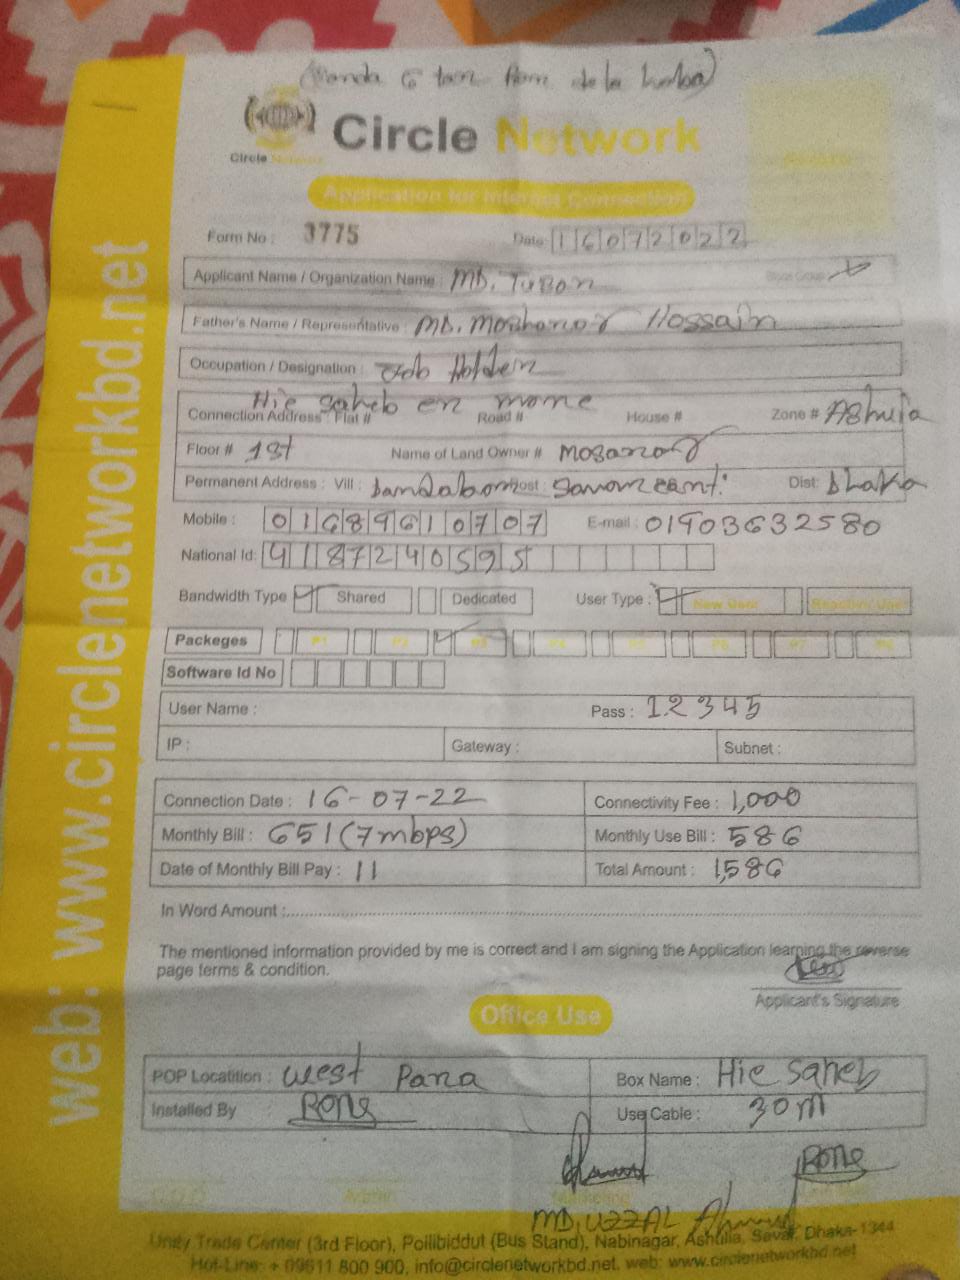 Circle Network
Circle Network
Application for Internet Connection
Form No : 3775 Date: 16072022
Applicant Name / Organization Name : MD. TuBon
Father's Name / Representative : MD. Hossain
Occupation / Designation : Job Holder
Hie saheb en mone
Connection Address : Flat # Road # House # Zone # Ashulia
Floor # 1st Name of Land Owner #
Permanent Address : Vill : Post : Dist: Dhaka
Mobile : 01689610707 E-mail : 01903632580
National Id: 4187240595
Bandwidth Type Shared Dedicated User Type : New User
Packeges P1 P2 P3 P4 P5 P6 P7 P8
Software Id No
User Name : Pass : 12345
IP : Gateway : Subnet :
Connection Date : 16-07-22 Connectivity Fee : 1,000
Monthly Bill : 651 (7mbps) Monthly Use Bill : 586
Date of Monthly Bill Pay : 11 Total Amount : 1,586
In Word Amount :
The mentioned information provided by me is correct and I am signing the Application learning the reverse
page terms & condition.
Applicant's Signature
Office Use
POP Locatition : West Para Box Name : Hie Saheb
Installed By : RONG Use Cable : 30m
RONG
Admin Marketing
MD, UZZAL Ahmed
Unity Trade Center (3rd Floor), Pollibiddut (Bus Stand), Nabinagar, Ashulia, Savar, Dhaka-1344
Hot-Line: + 09611 800 900, info@circlenetworkbd.net, web: www.circlenetworkbd.net
web: www.circlenetworkbd.net